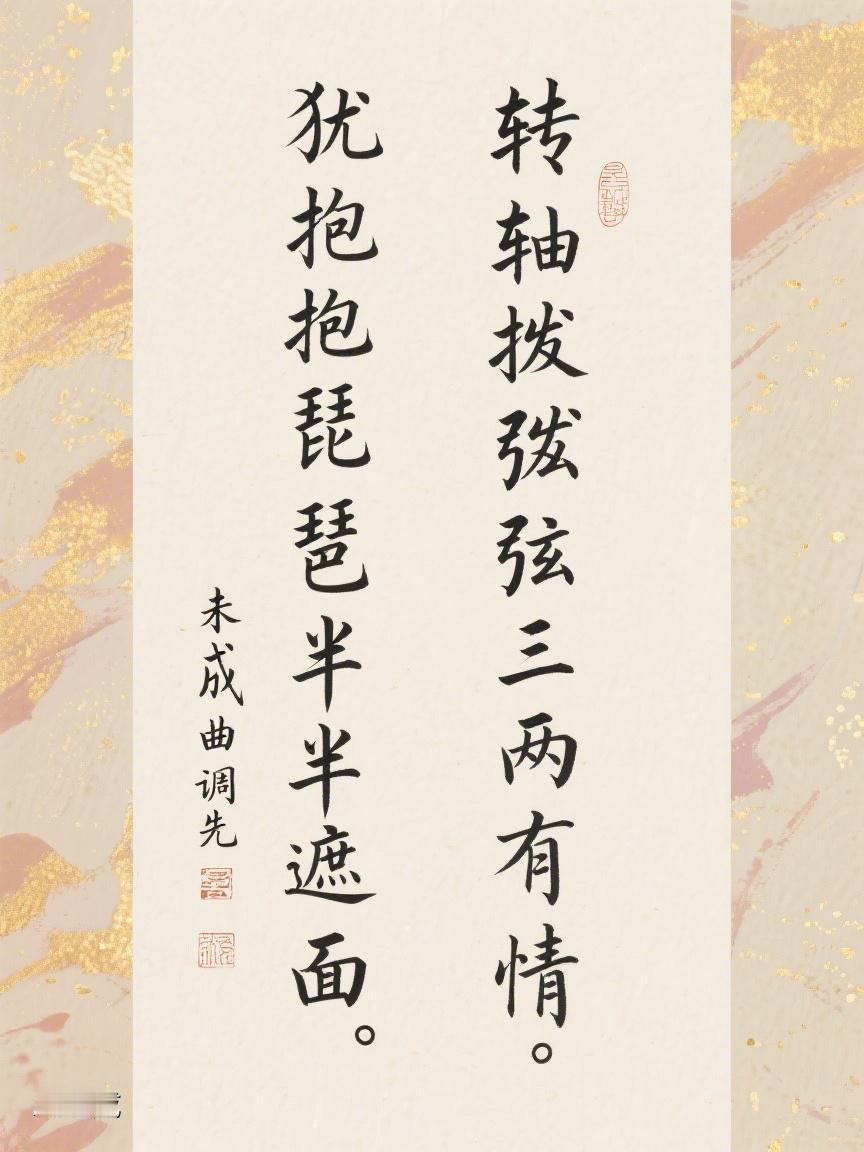 转轴拨弦三两有情。
犹抱抱琵琶半半遮面。
未成曲调先